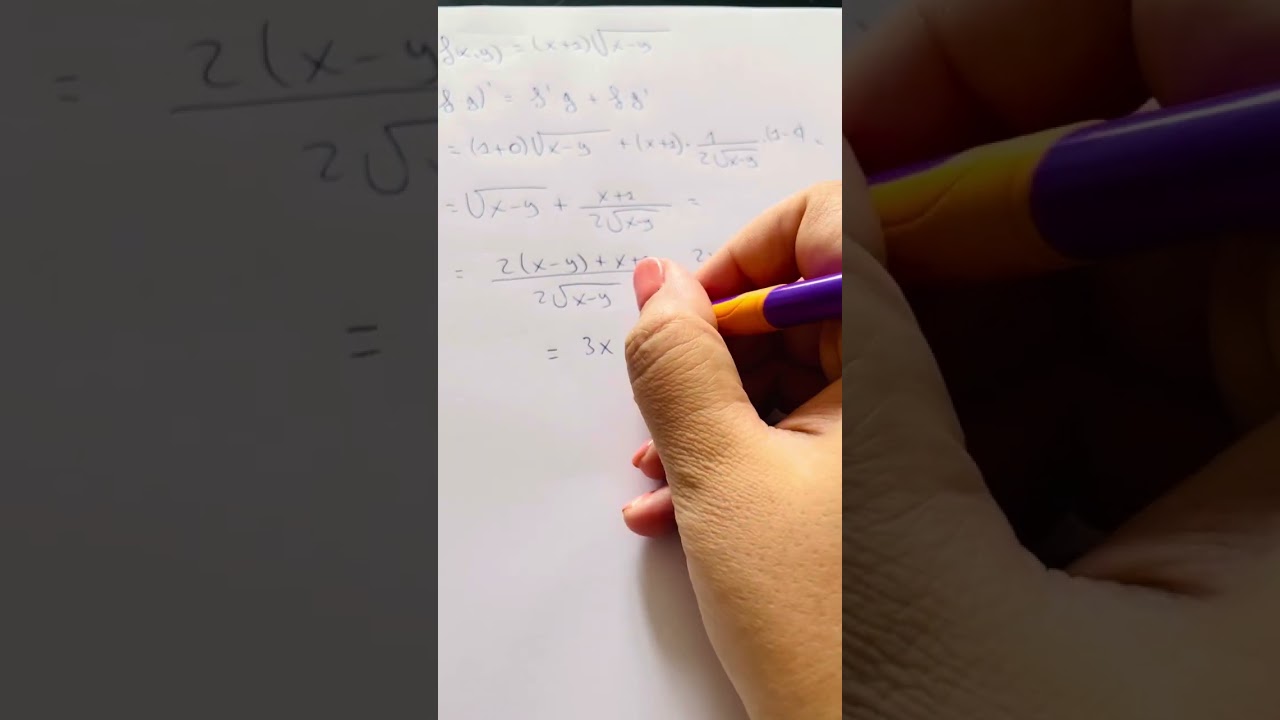 f(x,y) = (x+1)√x-y
f g)' = f' g + f g'
= (1+0)√x-y + (x+1) · 1/2√x-y · (1-0) =
= √x-y + x+1/2√x-y =
= 2(x-y)+x+1/2√x-y 2
= 3x